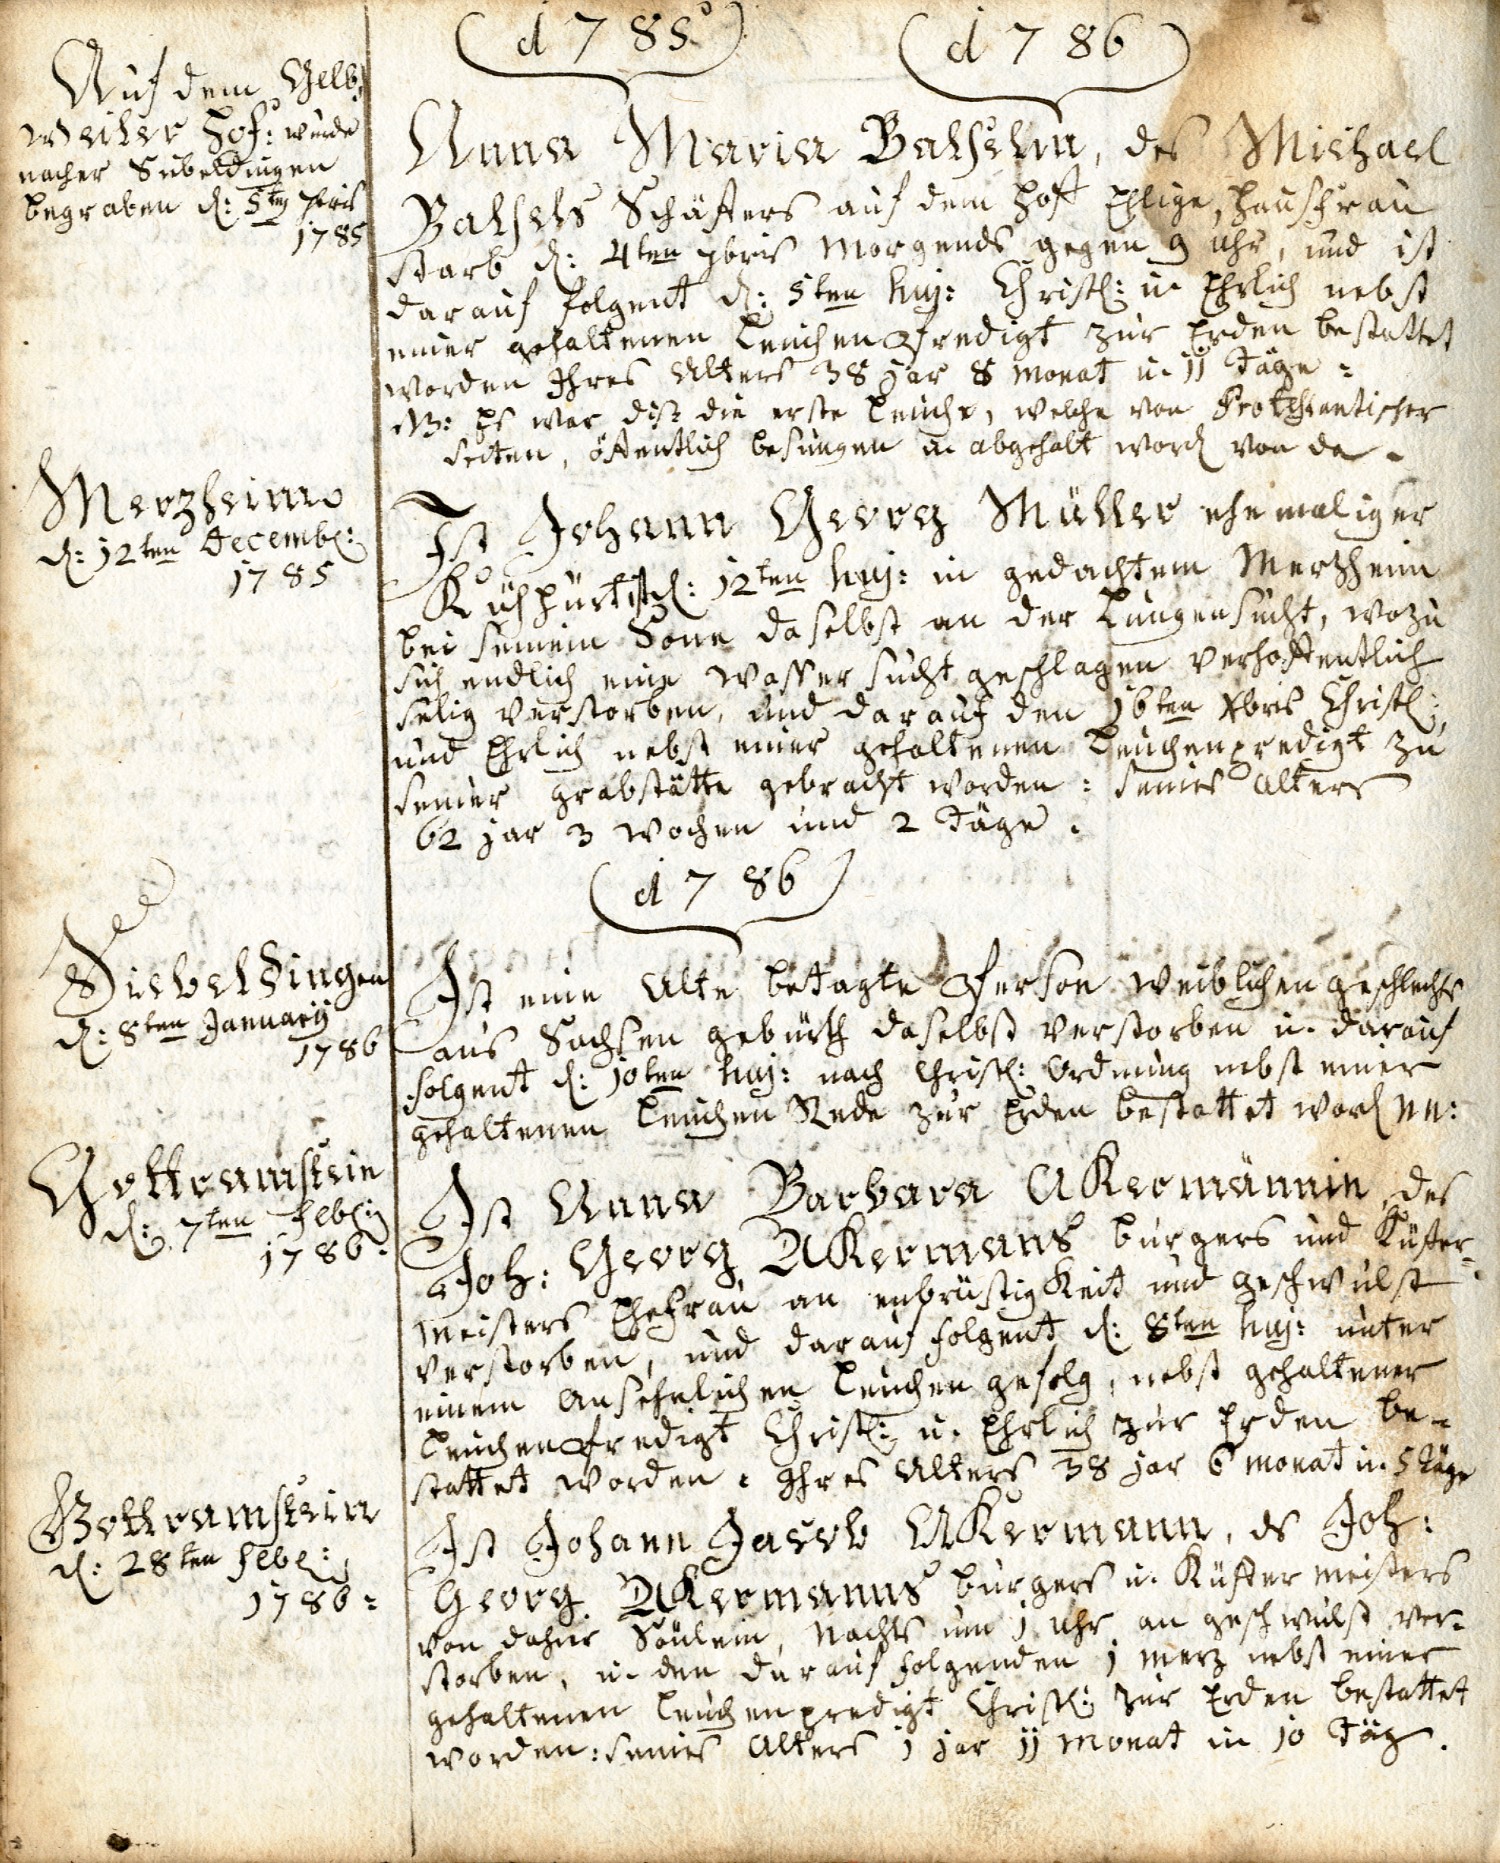 1785
1786
Auf dem Gelb,
weiler Hof: wurde
nacher Sibeldingen
begraben d: 5ten 7bris
1785
Anna Maria Balsslin, des Michael
Balsels Schäffers auf dem Hoff Ehlige, Hausfrau
starb d: 4ten 7bris Morgends gegen 9 Uhr, und ist
darauf folgent d: 5ten huj: Christl: u. Ehrlich nebst
einer gehaltenen Leichenpredigt zur Erden bestattet
worden Ihres Alters 38 jar 8 monat u. 11 Täge =
NB: Es war dise die erste Leiche, welche von Protestantischer
seiten, öffentlich besungen u. abgehalt word von da.
Merzheim
d: 12ten Decembr:
1785
Ist Johann Georg Müller ehemaliger
Kühhürt d: 12ten huj: in gedachtem Mertzheim
bei seinem Sone daselbst an der Lungensucht, wozu
sich endlich eine Wassersucht geschlagen verhoffentlich
selig verstorben, und darauf den 16ten Xbris Christl:
und Ehrlich nebst einer gehaltenen Leichenpredigt zu
seiner grabstätte gebracht worden: seines Alters
62 jar 3 wochen und 2 Täge.
1786
Siebeldingen
d: 8ten January
1786
Ist eine Alte betagte Person weiblichen geschlechts
aus Sachsen gebürth daselbst verstorben u. darauf
folgent d: 10ten huj: nach Christl: Ordnung nebst einer
gehaltenen Leichen Rede zur Erden bestattet word NN:
Gottramstein
d: 7ten Febr:
1786.
Ist Anna Barbara Akermännin, des
Joh: Georg Akermans burgers und Küffer-
meisters Ehefrau an enbrüstigkeit und geschwulst
verstorben, und darauf folgent d: 8ten huj: unter
einem Ansehnlichen Leichengefolg, nebst gehaltener
Leichenpredigt Christl: u. Ehrlich zur Erden be-
stattet worden. Ihres Alters 38 jar 6 monat u. 5 täge
Gottramstein
d: 28ten Febr:
1786=
Ist Johann Jacob Akermann, ds Joh:
Georg Akermanns burgers u. Küffermeisters
von daher Sönlein, Nachts um 1 Uhr an geschwulst ver-
storben, u. den darauf folgenden 1 merz nebst einer
gehaltenen Leichenpredigt Christl: zur Erden bestattet
worden: seines Alters 1 jar 11 monat u. 10 Täg.